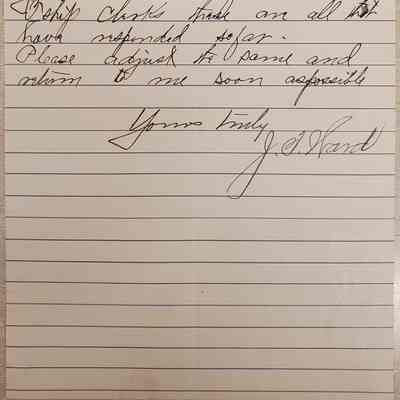 Ship Clerks these are all that
have responded so far.
Please adjust the same and
return to me soon as possible
Yours truly
J. T. Ward